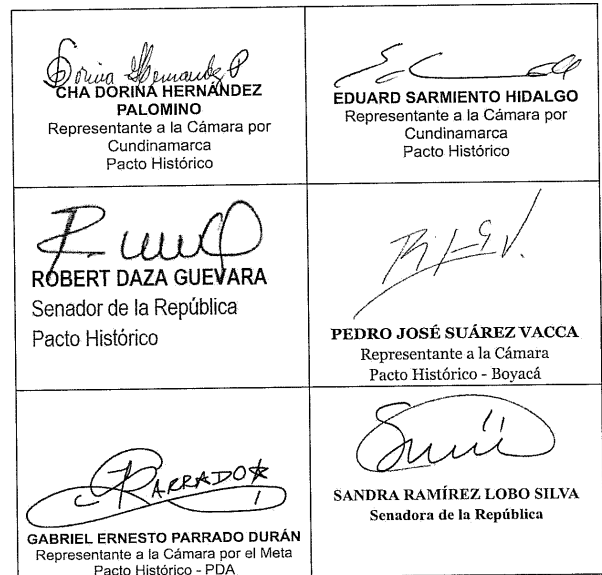 Dorina Hernandez P
CHA DORINA HERNÁNDEZ
PALOMINO
Representante a la Cámara por
Cundinamarca
Pacto Histórico
EDUARD SARMIENTO HIDALGO
Representante a la Cámara por
Cundinamarca
Pacto Histórico
ROBERT DAZA GUEVARA
Senador de la República
Pacto Histórico
PEDRO JOSÉ SUÁREZ VACCA
Representante a la Cámara
Pacto Histórico - Boyacá
PARRADO
GABRIEL ERNESTO PARRADO DURÁN
Representante a la Cámara por el Meta
Pacto Histórico - PDA
SANDRA RAMÍREZ LOBO SILVA
Senadora de la República